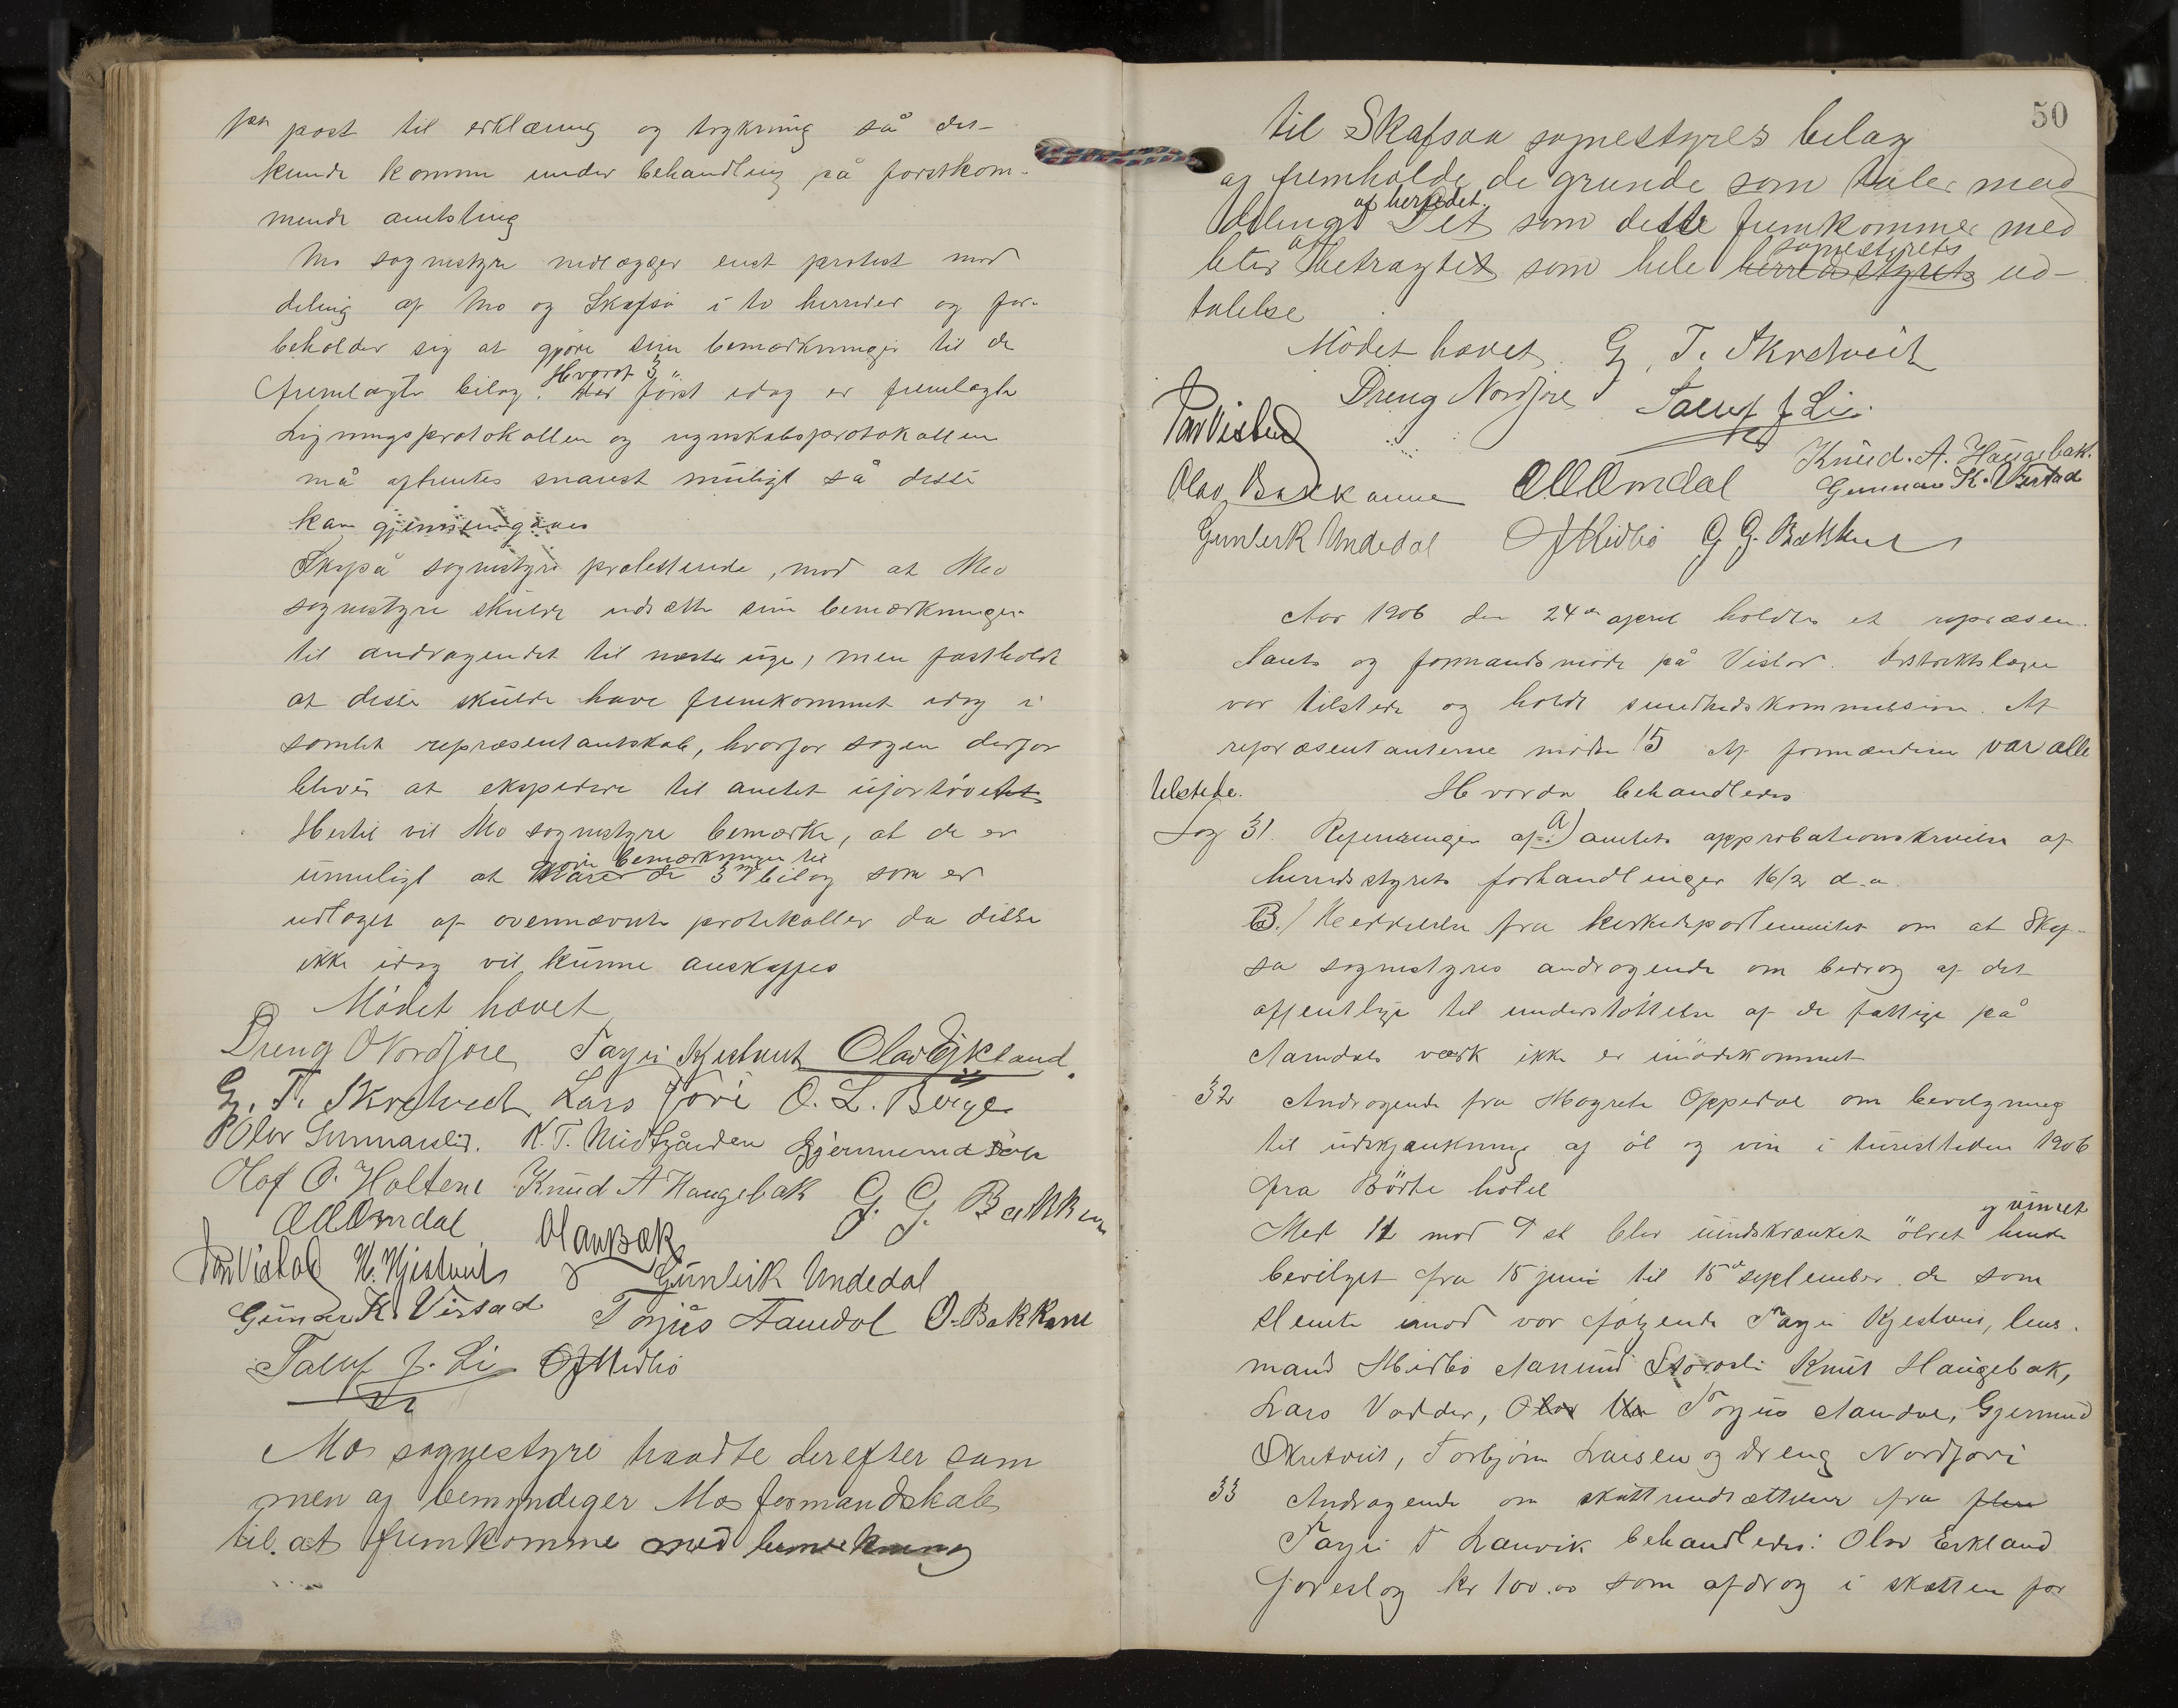 pr post til erklæring og trykning så det
kunde komme under behandling på førstkom-
mende amtsting
Mo sognestyre nedlægger enst. protest mod
deling af Mo og Skafså i to herreder og for-
beholder sig at gjøre sine bemærkninger til de
fremlagte bilag. Hvoraf 3 først idag er fremlagte
Ligningsprotokollen og regnskabsprotokollen
må afhentes snarest muligt så disse
kan gjennemgåes
Skafså sognestyre protesterede, mod at Mo
sognestyre skulde udsætte sine bemærkninger
til andragendet til næste uge, men fastholdt
at disse skulde have fremkommet idag i
samlet repræsentantskab, hvorfor sagen derfor
bliver at expedere til amtet ufortøvet
Hertil vil Mo sognestyre bemærke, at de er
umuligt at gjøre bemærkninger til de 3 bilag som er
udtaget af ovennævnte protokoller da disse
ikke idag vil kunne anskaffes
Mødet hævet
Dreng O Nordjore Tarjei Kjestveit Olav Eikland
G. T. Skretveit Lars Jore O. L. Børge
Olav Gunnarslid. K. T. Midtgården Gjermund
Olaf O. Holtene Knud A Haugebak G. G. Bakken
A O Omdal Olav Bak
Vistad H. Kjestveit Gunleik Undedal
Gunnar K. Vistad Torjus Aamdal O. Bakkane
Talef J. Li O J Midbø
Mo sognestyre traadte derefter sam
men og bemyndiger Mos formandskab
til at fremkomme med bemerkning
50
til Skafsaa sognestyres bilag
og fremholde de grunde som taler mod
deling af herredet. Det som dette fremkommer med
blir at betragtet som hele herredsstyrets sognestyrets ud-
talelse
Mødet hævet. G. T. Skretveit
Dreng Nordjore Talef J Li.
Vistad Knud. A. Haugebak.
Olav Bakkanne A O Omdal Gunnar K. Vistad
Gunleik Undedal O J Midbø G G. Bakken
Aar 1906 den 24de april holdtes et repræsen-
tants og formandsmøde på Vistad. Distriktslægen
var tilstede og holdt sundhedskommission. Af
repræsentanterne mødte 15 Af formændene var alle
tilstede. Hvorda behandledes
Sag 31. Refereringer af: a) amtets approbationskrivelse af
herredsstyrets forhandlinger 16/2 d.a.
B./ Meddelelse fra kirkedepartementet om at Skaf-
så sognestyres andragende om bidrag af det
offentlige til understøttelse af de fattige på
Aamdals værk ikke er imødekommet
32 Andragende fra Margrete Oppedal om bevilgning
til udskjænkning af øl og vin i turisttiden 1906
fra Børte hotel
Med 11 mod 9 st blev uindskrænket ølret og vinret hende
bevilget fra 15 juni til 15de september. de som
stemte imod var følgende Tarjei Kjestveit, lens-
mand Midbø Aanund Storosli Knut Haugebak,
Lars Vadder, Olav Torjus Aamdal, Gjermund
Skretveit, Torbjørn Larsen og Dreng Nordjore
33 Andragende om skattenedsættelser fra flere
Tarjei T Lauvik behandledes: Olav Eikland
foreslog kr 100.00 som afdrag i skatten for